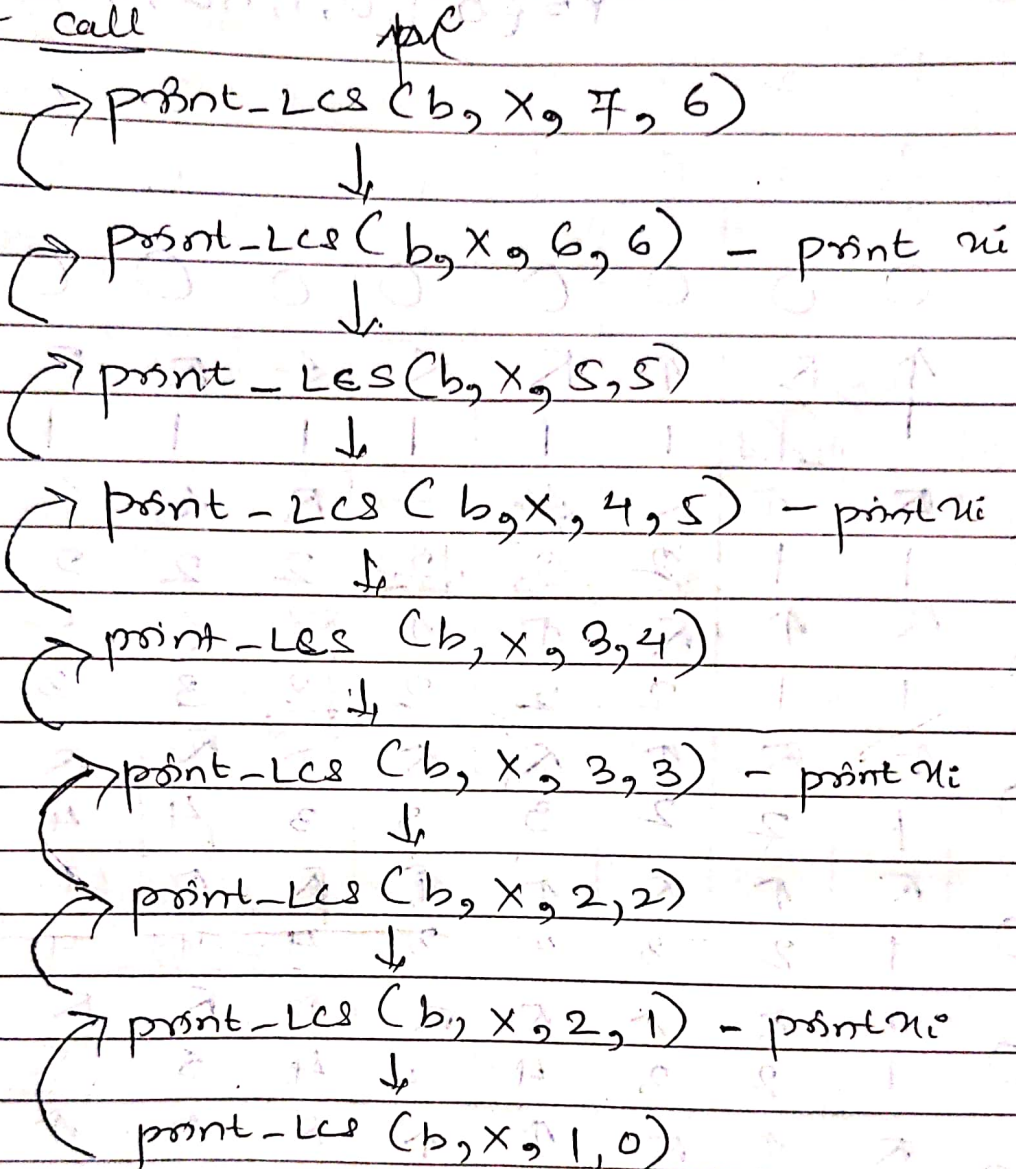 call
print_LCS (b, X, 7, 6)
↓
print_LCS (b, X, 6, 6) - print xi
↓
print_LCS (b, X, 5, 5)
↓
print_LCS (b, X, 4, 5) - print xi
↓
print_LCS (b, X, 3, 4)
↓
print_LCS (b, X, 3, 3) - print xi
↓
print_LCS (b, X, 2, 2)
↓
print_LCS (b, X, 2, 1) - print xi
↓
print_LCS (b, X, 1, 0)